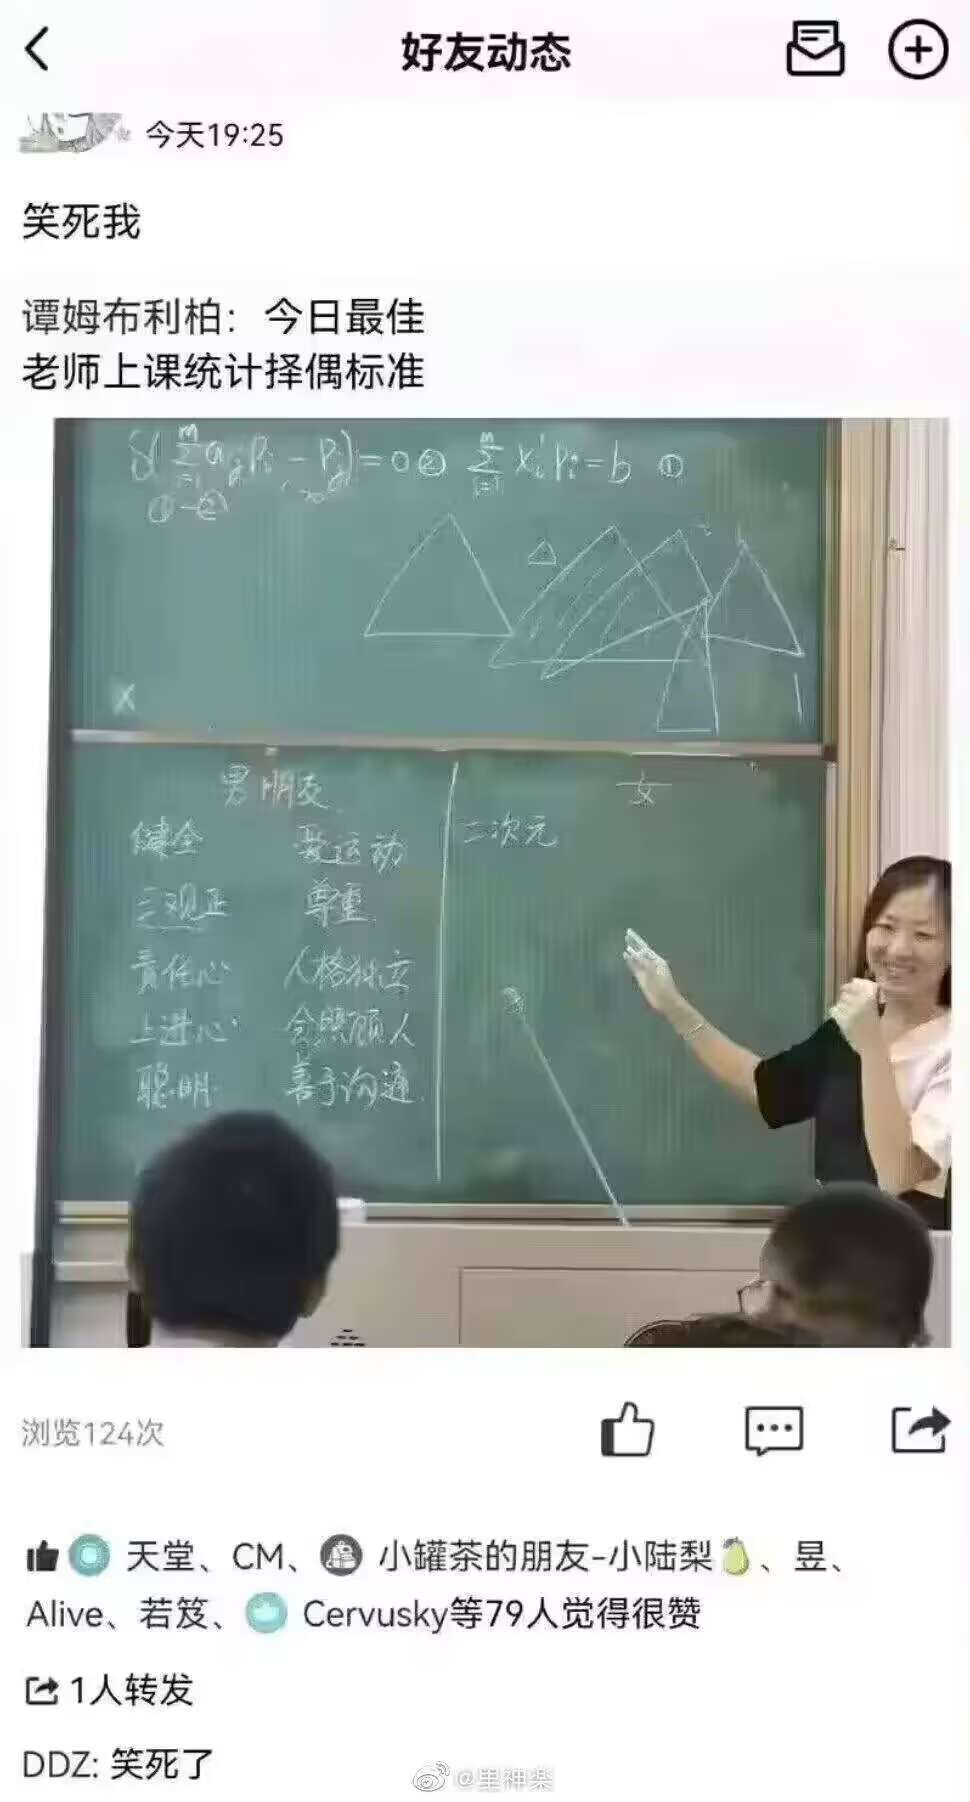 好友动态
今天19:25
笑死我
谭姆布利柏：今日最佳
老师上课统计择偶标准
=0② =b ①
①-②
x
男朋友
健全 爱运动
三观正 尊重
责任心 人格独立
上进心 会照顾人
聪明 善于沟通
女
二次元
浏览124次
天堂、CM、小罐茶的朋友-小陆梨🍐、昱、
Alive、若笈、Cervusky等79人觉得很赞
1人转发
DDZ: 笑死了
@里神楽